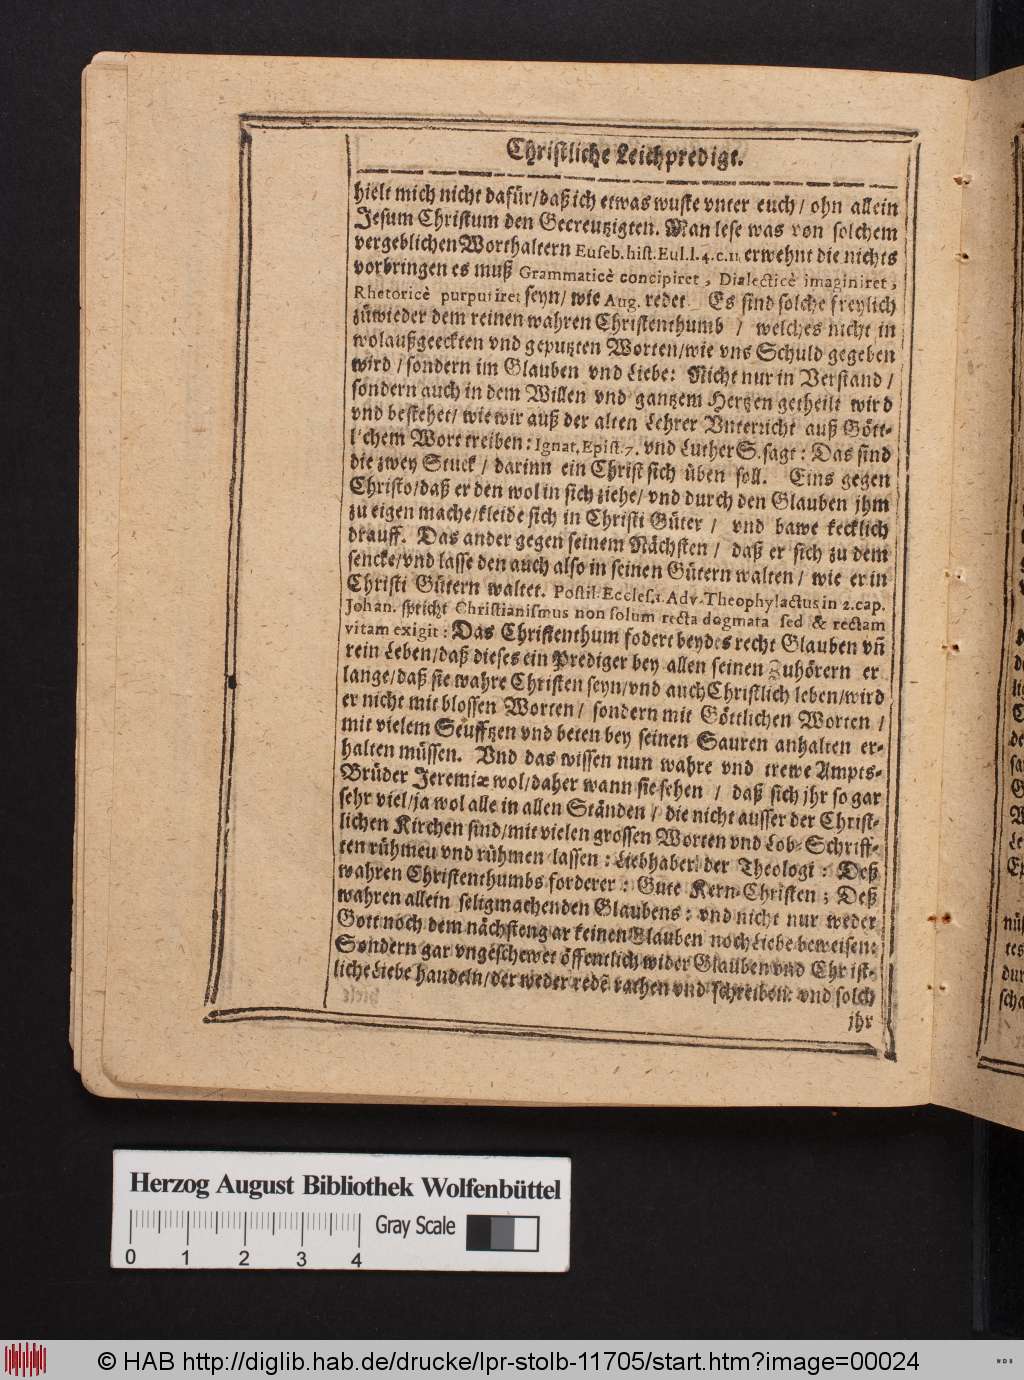 Christliche Leichpredigt.
hielt mich nicht dafür/daß ich etwas wuste vnter euch/ ohn allein
Jesum Christum den Gecreutzigten. Man lese was von solchem
vergeblichen Worthaltern Euseb. hist. Eul. l. 4. c. 11 erwehnt die nichts
vorbringen es muß Grammaticè concipiret, Dialecticè imaginiret,
Rhetoricè purpuriret seyn/ wie Aug. redet. Es sind solche freylich
züwieder dem reinen wahren Christenthumb / welches nicht in
wolaußgeeckten vnd geputzten Worten/wie vns Schuld gegeben
wird / sondern im Glauben vnd Liebe: Nicht nur in Verstand /
sondern auch in dem Willen vnd gantzem Hertzen getheilt wird
vnd bestehet/ wie wir auß der alten Lehrer Vnterricht auß Gött-
l'chem Wort treiben: Ignat. Epist. 7. vnd Luther S. sagt: Das sind
die zwey Stuck / darinn ein Christ sich üben soll. Eins gegen
Christo/daß er den wol in sich ziehe/ vnd durch den Glauben jhm
zu eigen mache/kleide sich in Christi Güter / vnd bawe kecklich
drauff. Das ander gegen seinem Nächsten / daß er sich zu dem
sencke/vnd lasse den auch also in seinen Gütern walten / wie er in
Christi Gütern waltet. Postil. Eccles. 1. Adv. Theophylactus in 2. cap.
Johan. spricht Christianismus non solum recta dogmata sed & rectam
vitam exigit: Das Christenthum fodert beydes recht Glauben vñ
rein Leben/daß dieses ein Prediger bey allen seinen Zuhörern er
lange/daß sie wahre Christen seyn/vnd auch Christlich leben/wird
er nicht mit blossen Worten / sondern mit Göttlichen Worten /
mit vielem Seufftzen vnd beten bey seinen Sauren anhalten er-
halten müssen. Vnd das wissen nun wahre vnd trewe Ampts-
Brüder Jeremiæ wol/daher wann sie sehen / daß sich jhr so gar
sehr viel/ja wol alle in allen Ständen / die nicht ausser der Christ-
lichen Kirchen sind/mit vielen grossen Worten vnd Lob-Schriff-
ten rühmeu vnd rühmen lassen: Liebhaber der Theologi: Deß
wahren Christenthumbs forderer: Gute Kern-Christen; Deß
wahren allein seligmachenden Glaubens: vnd nicht nur weder
Gott noch dem nächsteng ar keinen Glauben noch Liebe beweisen:
Sondern gar vngeschewet öffentlich wider Glauben vnd Christ-
liche Liebe handeln/der weder redẽ rathen vnd schreiben: vnd solch
jhr
Herzog August Bibliothek Wolfenbüttel
Gray Scale
0 1 2 3 4
© HAB http://diglib.hab.de/drucke/lpr-stolb-11705/start.htm?image=00024